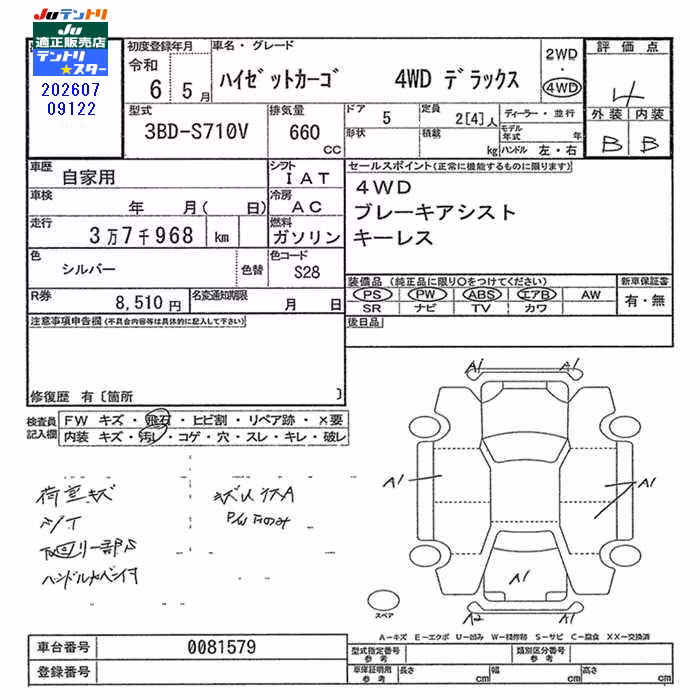 JUテントリ
JU
適正販売店
テントリ
★スター
202607
09122
初度登録年月
令和
6 5月
車名・グレード
ハイゼットカーゴ 4WD デラックス
2WD
・
4WD
評価点
4
外装 内装
B B
型式
3BD-S710V
排気量
660
CC
ドア
5
定員
2[4]人
形状
積載
kg
ディーラー・並行
モデル年式 年
ハンドル 左・右
車歴
自家用
シフト
IAT
車検
年 月( 日)
冷房
AC
走行
3万7千968 km
燃料
ガソリン
色
シルバー
色替
色コード
S28
R券
8,510円
名変通知期限
月 日
セールスポイント(正常に機能するものに限ります)
4WD
ブレーキアシスト
キーレス
装備品(純正品に限り○をつけてください)
新車保証書
PS PW ABS エアB AW
SR ナビ TV カワ
有・無
後日品
注意事項申告欄(不具合内容等は具体的に記入して下さい)
修復歴 有〔箇所 〕
検査員
記入欄
FW キズ・飛石・ヒビ割・リペア跡・×要
内装 キズ・汚レ・コゲ・穴・スレ・キレ・破レ
荷室キズ
下回リ一部S
PW Fのみ
A1 A1
A1 A1
A1
A2 A1
スペア
A-キズ E-エクボ U-凹み W-補修跡 S-サビ C-腐食 XX-交換済
車台番号
0081579
登録番号
型式指定番号
参考
類別区分番号
参考
車庫証明用
参考
長さ cm 幅 cm 高さ cm